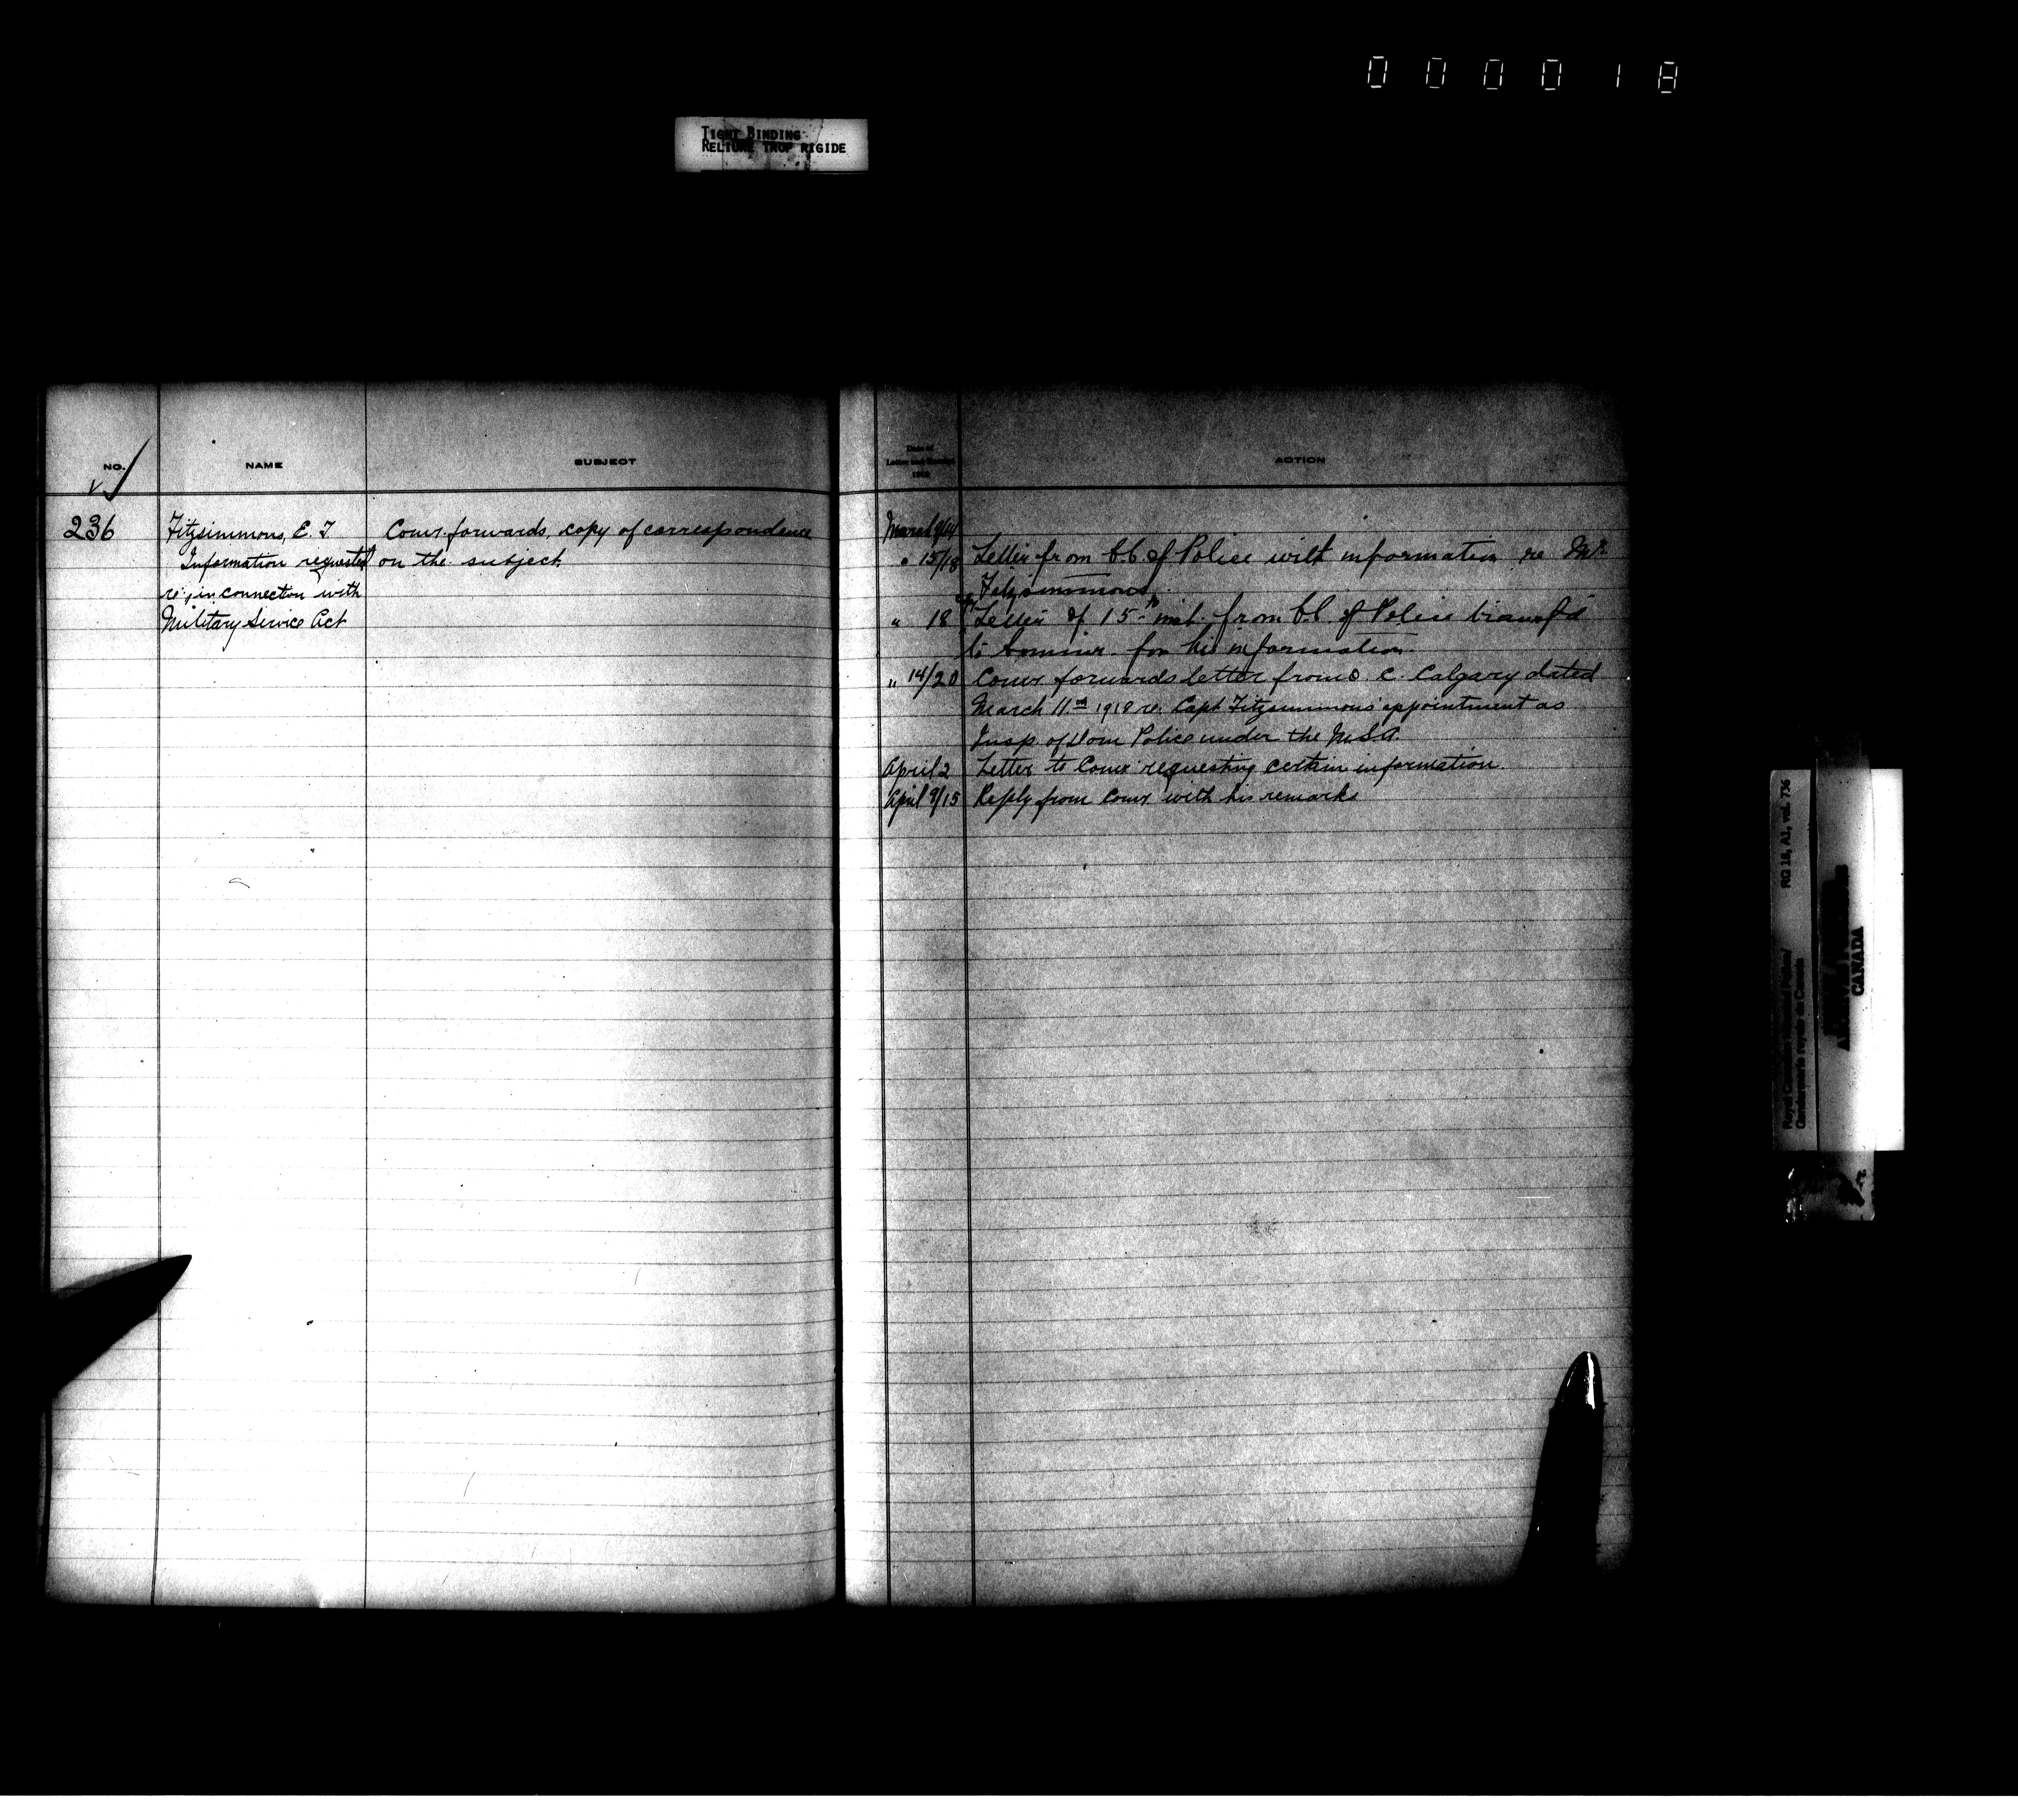 000018
TIGHT BINDING
RELIURE TROP RIGIDE
NO.
NAME
SUBJECT
Date of
Letter and Receipt
1918
ACTION
236
Fitzsimmons, E. T.
Information requested
re; in connection with
Military Service Act
Comr. forwards, copy of correspondence
on the subject.
March 9/14
" 15/18 Letter from C.C. of Police with information re Mr.
Fitzsimmons.
" 18 Letter of 15th inst. from C.C. of Police transf'd
to Commr. for his information.
" 14/20 Comr forwards letter from O. C. Calgary dated
March 11th 1918 re. Capt Fitzsimmons appointment as
Insp. of Dom Police under the M.S.A.
April 2 Letter to Comr requesting certain information.
April 9/15 Reply from Comr with his remarks
RG 18, A2, vol. 736
Royal Canadian Mounted Police/
Gendarmerie royale du Canada
CANADA